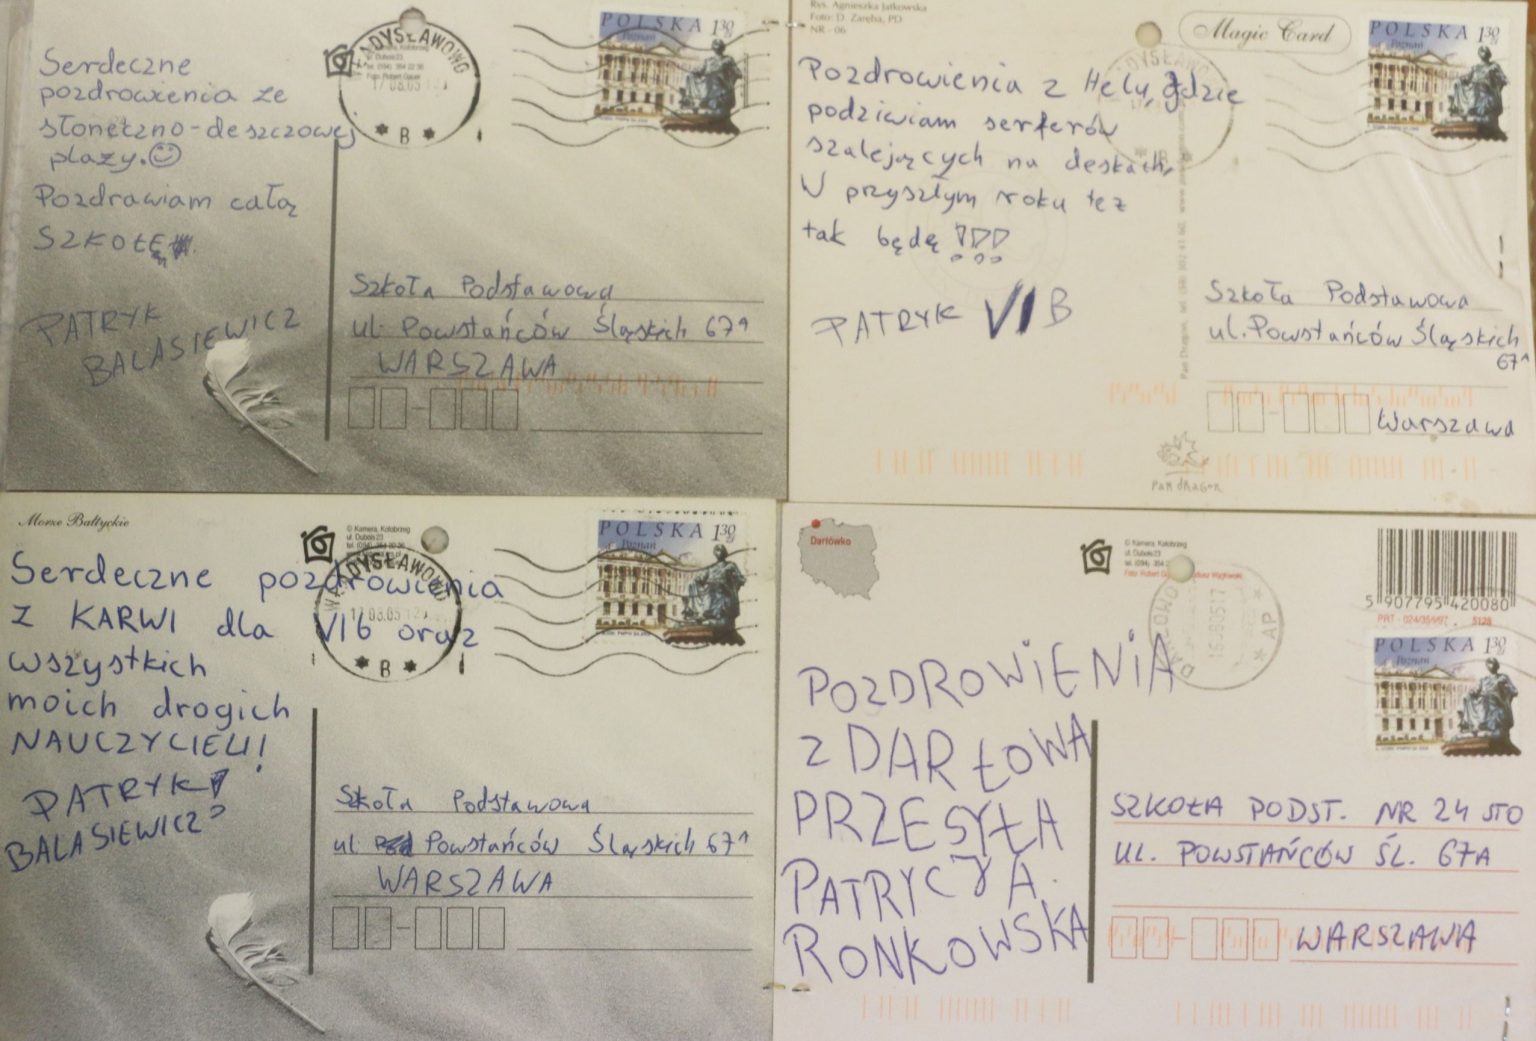 Serdeczne
pozdrowienia ze
słoneczno-deszczowej
plaży.
Pozdrawiam całą
SZKOŁĘ
PATRYK
BALASIEWICZ
WŁADYSŁAWOWO
B
POLSKA 130
Poznań
Szkoła Podstawowa
ul. Powstańców Śląskich 67A
WARSZAWA
Rys. Agnieszka Jatkowska
Foto: D. Zaręba, PD
NR - 06
Magic Card
POLSKA 130
Poznań
Pozdrowienia z Helu, gdzie
podziwiam serferów
szalejących na deskach,
W przyszłym roku też
tak będę !!!
PATRYK VI B
Szkoła Podstawowa
ul. Powstańców Śląskich
67A
Warszawa
Pan dRagon
Morze Bałtyckie
© Kamera, Kołobrzeg
ul. Dubois 23
WŁADYSŁAWOWO
B
POLSKA 130
Poznań
Serdeczne pozdrowienia
z KARWI dla VI b oraz
wszystkich
moich drogich
NAUCZYCIELI!
PATRYK
BALASIEWICZ
Szkoła Podstawowa
ul. Powstańców Śląskich 67A
WARSZAWA
Darłówko
© Kamera, Kołobrzeg
ul. Dubois 23
5 907795 420080
POLSKA 130
Poznań
POZDROWIENIA
z DARŁOWA
PRZESYŁA
PATRYCJA
RONKOWSKA
SZKOŁA PODST. NR 24 STO
UL. POWSTAŃCÓW ŚL. 67A
WARSZAWA